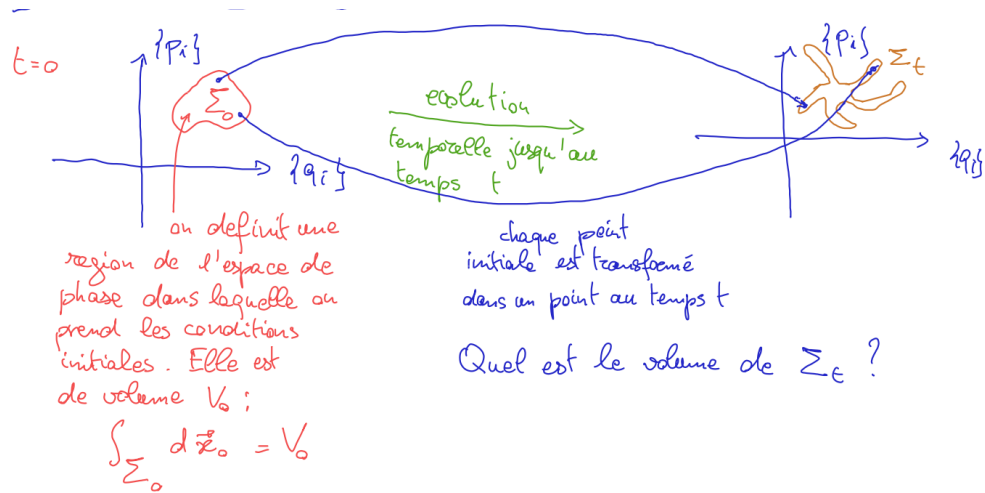 t=0
{pi}
Σ₀
{qi}
evolution
temporelle jusqu'au
temps t
{pi}
Σt
{qi}
on definit une
region de l'espace de
phase dans laquelle on
prend les conditions
initiales. Elle est
de volume V₀ :
∫Σ₀ d x⃗₀ = V₀
chaque point
initiale est transformé
dans un point au temps t
Quel est le volume de Σt ?